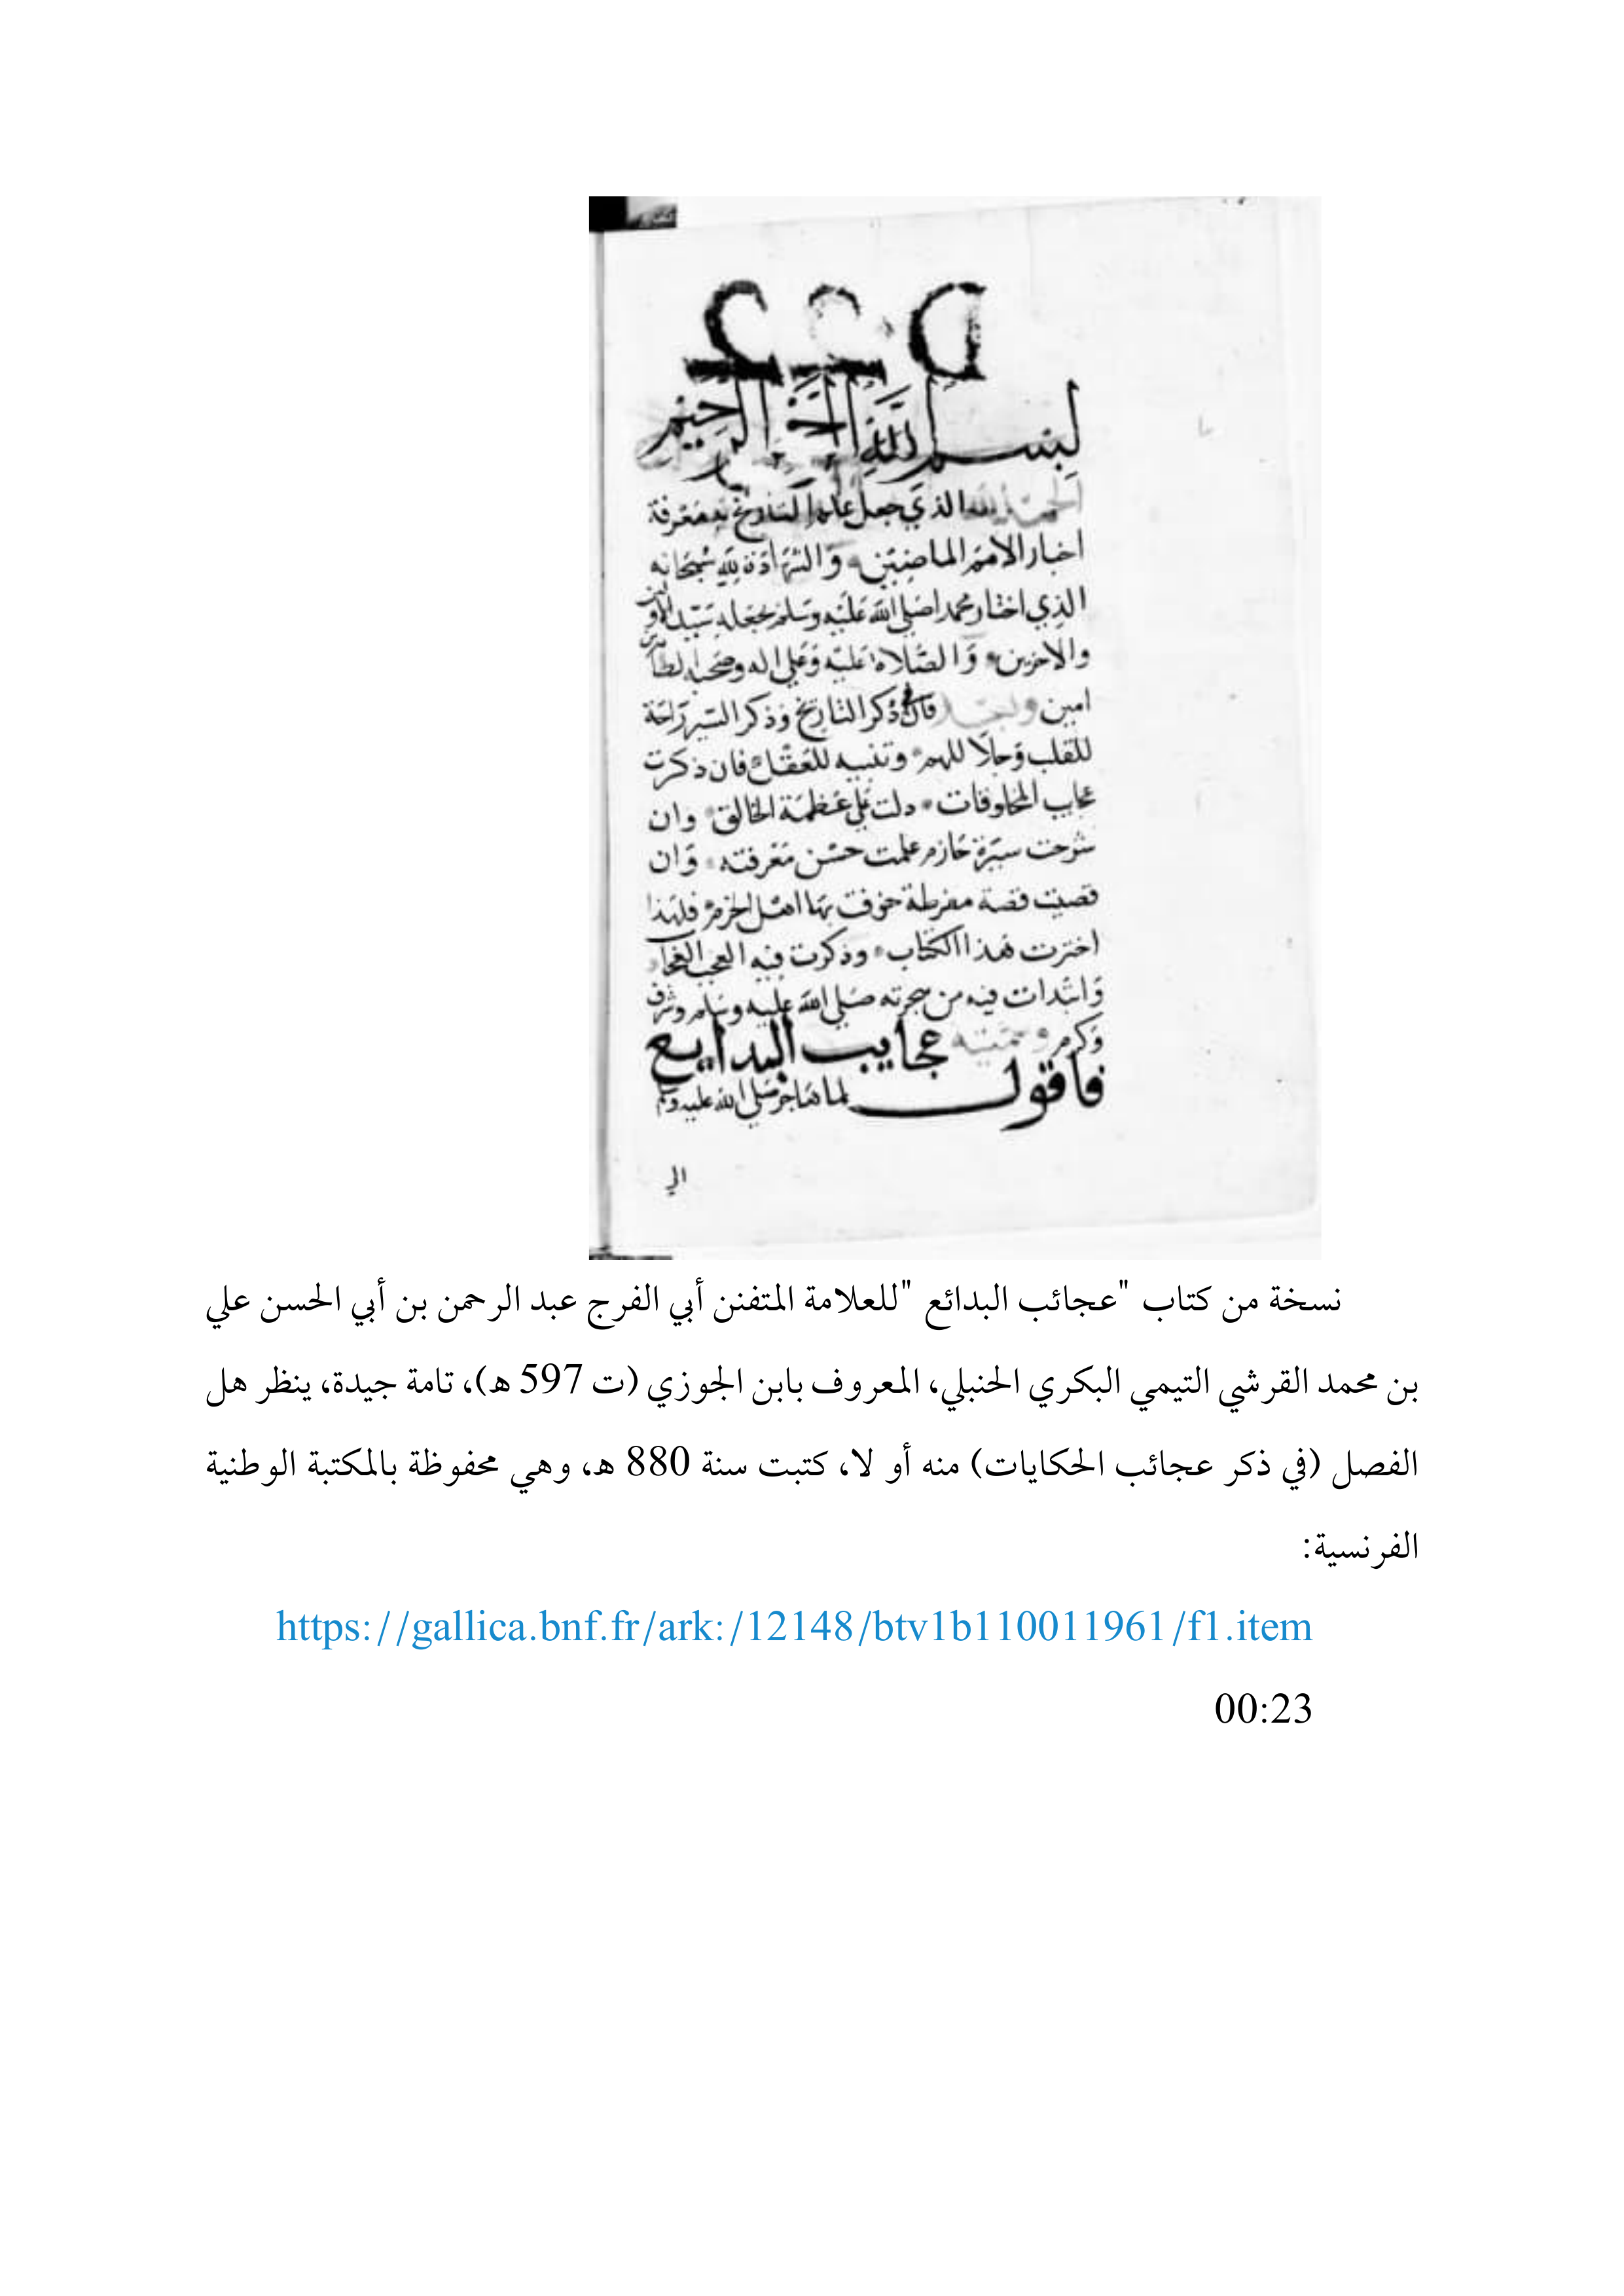 بسم الله الرحمن الرحيم
الحمد لله الذي جعل علم التاريخ به معرفة
اخبار الامم الماضيين والشهادة لله سبحانه
الذي اختار محمدا صلى الله عليه وسلم بجعله سيد الاولين
والاخرين والصلاة عليه وعلى اله وصحبه الطاهرين
امين وبعد فان في ذكر التاريخ وذكر السير راحة
للقلب وجلا للهم وتنبيه للعقل فان ذكرت
عجايب المخلوقات دلت على عظمة الخالق وان
شرحت سيرة حازم علمت حسن معرفته وان
قصيت قصة مفرطة خوفت بها اهل الحزم فلهذا
اخترت هذا الكتاب وذكرت فيه العجب العجاب
وابتدات فيه من هجرته صلى الله عليه وسلم وشرف
وكرم وسميته عجايب البدايع
فاقول لما هاجر صلى الله عليه وسلم
الى
نسخة من كتاب "عجائب البدائع "للعلامة المتفنن أبي الفرج عبد الرحمن بن أبي الحسن علي
بن محمد القرشي التيمي البكري الحنبلي، المعروف بابن الجوزي (ت 597 ه)، تامة جيدة، ينظر هل
الفصل (في ذكر عجائب الحكايات) منه أو لا، كتبت سنة 880 ه، وهي محفوظة بالمكتبة الوطنية
الفرنسية:
https://gallica.bnf.fr/ark:/12148/btv1b110011961/f1.item
00:23